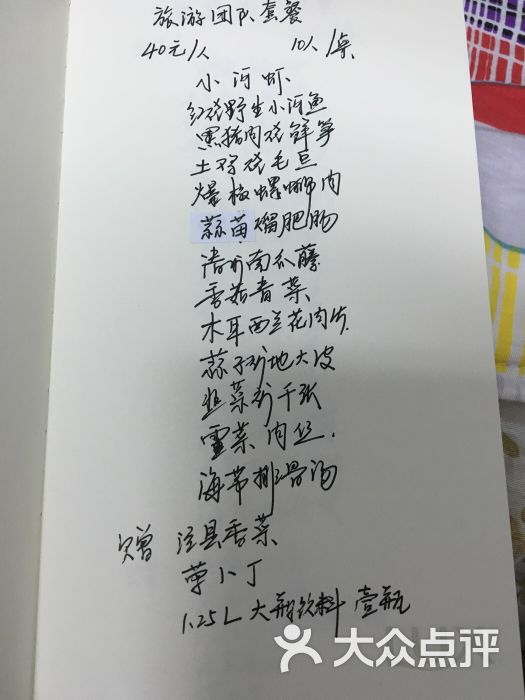 旅游团队套餐
40元/人 10人/桌
小河虾
红烧野生小河鱼
黑猪肉烧鲜笋
土鸡烧毛豆
爆椒螺蛳肉
蒜苗熘肥肠
清炒南瓜藤
香菇青菜
木耳西兰花肉片
蒜子炒地大皮
韭菜炒千张
雪菜肉丝.
海带排骨汤
赠 泾县香菜
萝卜丁
1.25L 大瓶饮料 壹瓶
大众点评